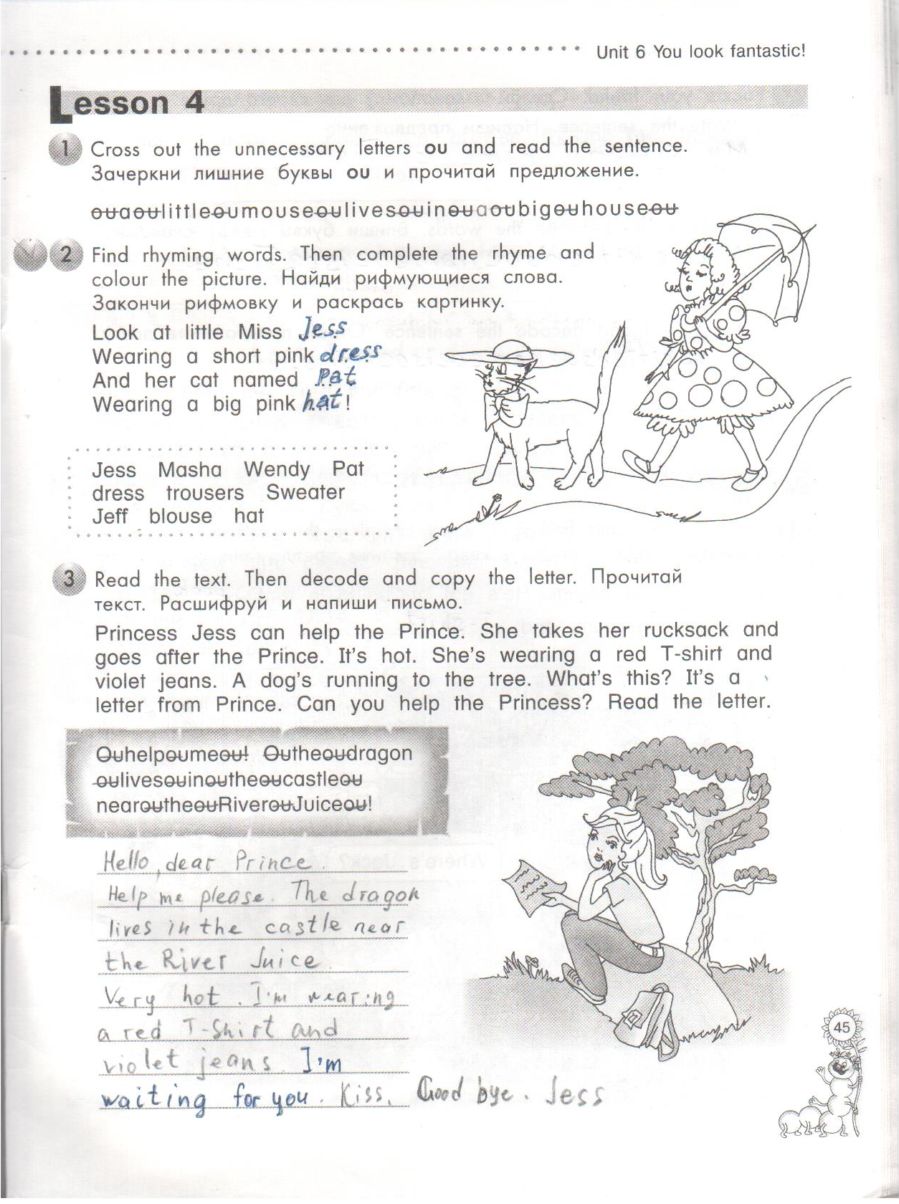 Unit 6 You look fantastic!
Lesson 4
1 Cross out the unnecessary letters ou and read the sentence.
Зачеркни лишние буквы ou и прочитай предложение.
ouaoulittleoumouseoulivesouinouaoubigouhouseou
2 Find rhyming words. Then complete the rhyme and
colour the picture. Найди рифмующиеся слова.
Закончи рифмовку и раскрась картинку.
Look at little Miss Jess
Wearing a short pink dress
And her cat named Pat
Wearing a big pink hat!
Jess Masha Wendy Pat
dress trousers Sweater
Jeff blouse hat
3 Read the text. Then decode and copy the letter. Прочитай
текст. Расшифруй и напиши письмо.
Princess Jess can help the Prince. She takes her rucksack and
goes after the Prince. It's hot. She's wearing a red T-shirt and
violet jeans. A dog's running to the tree. What's this? It's a
letter from Prince. Can you help the Princess? Read the letter.
Ouhelpoumeou! Outheoudragon
oulivesouinoutheoucastleou
nearoutheouRiverouJuiceou!
Hello, dear Prince.
Help me please. The dragon
lives in the castle near
the River Juice
Very hot. I'm wearing
a red T-shirt and
violet jeans. I'm
waiting for you. Kiss. Good bye. Jess
45